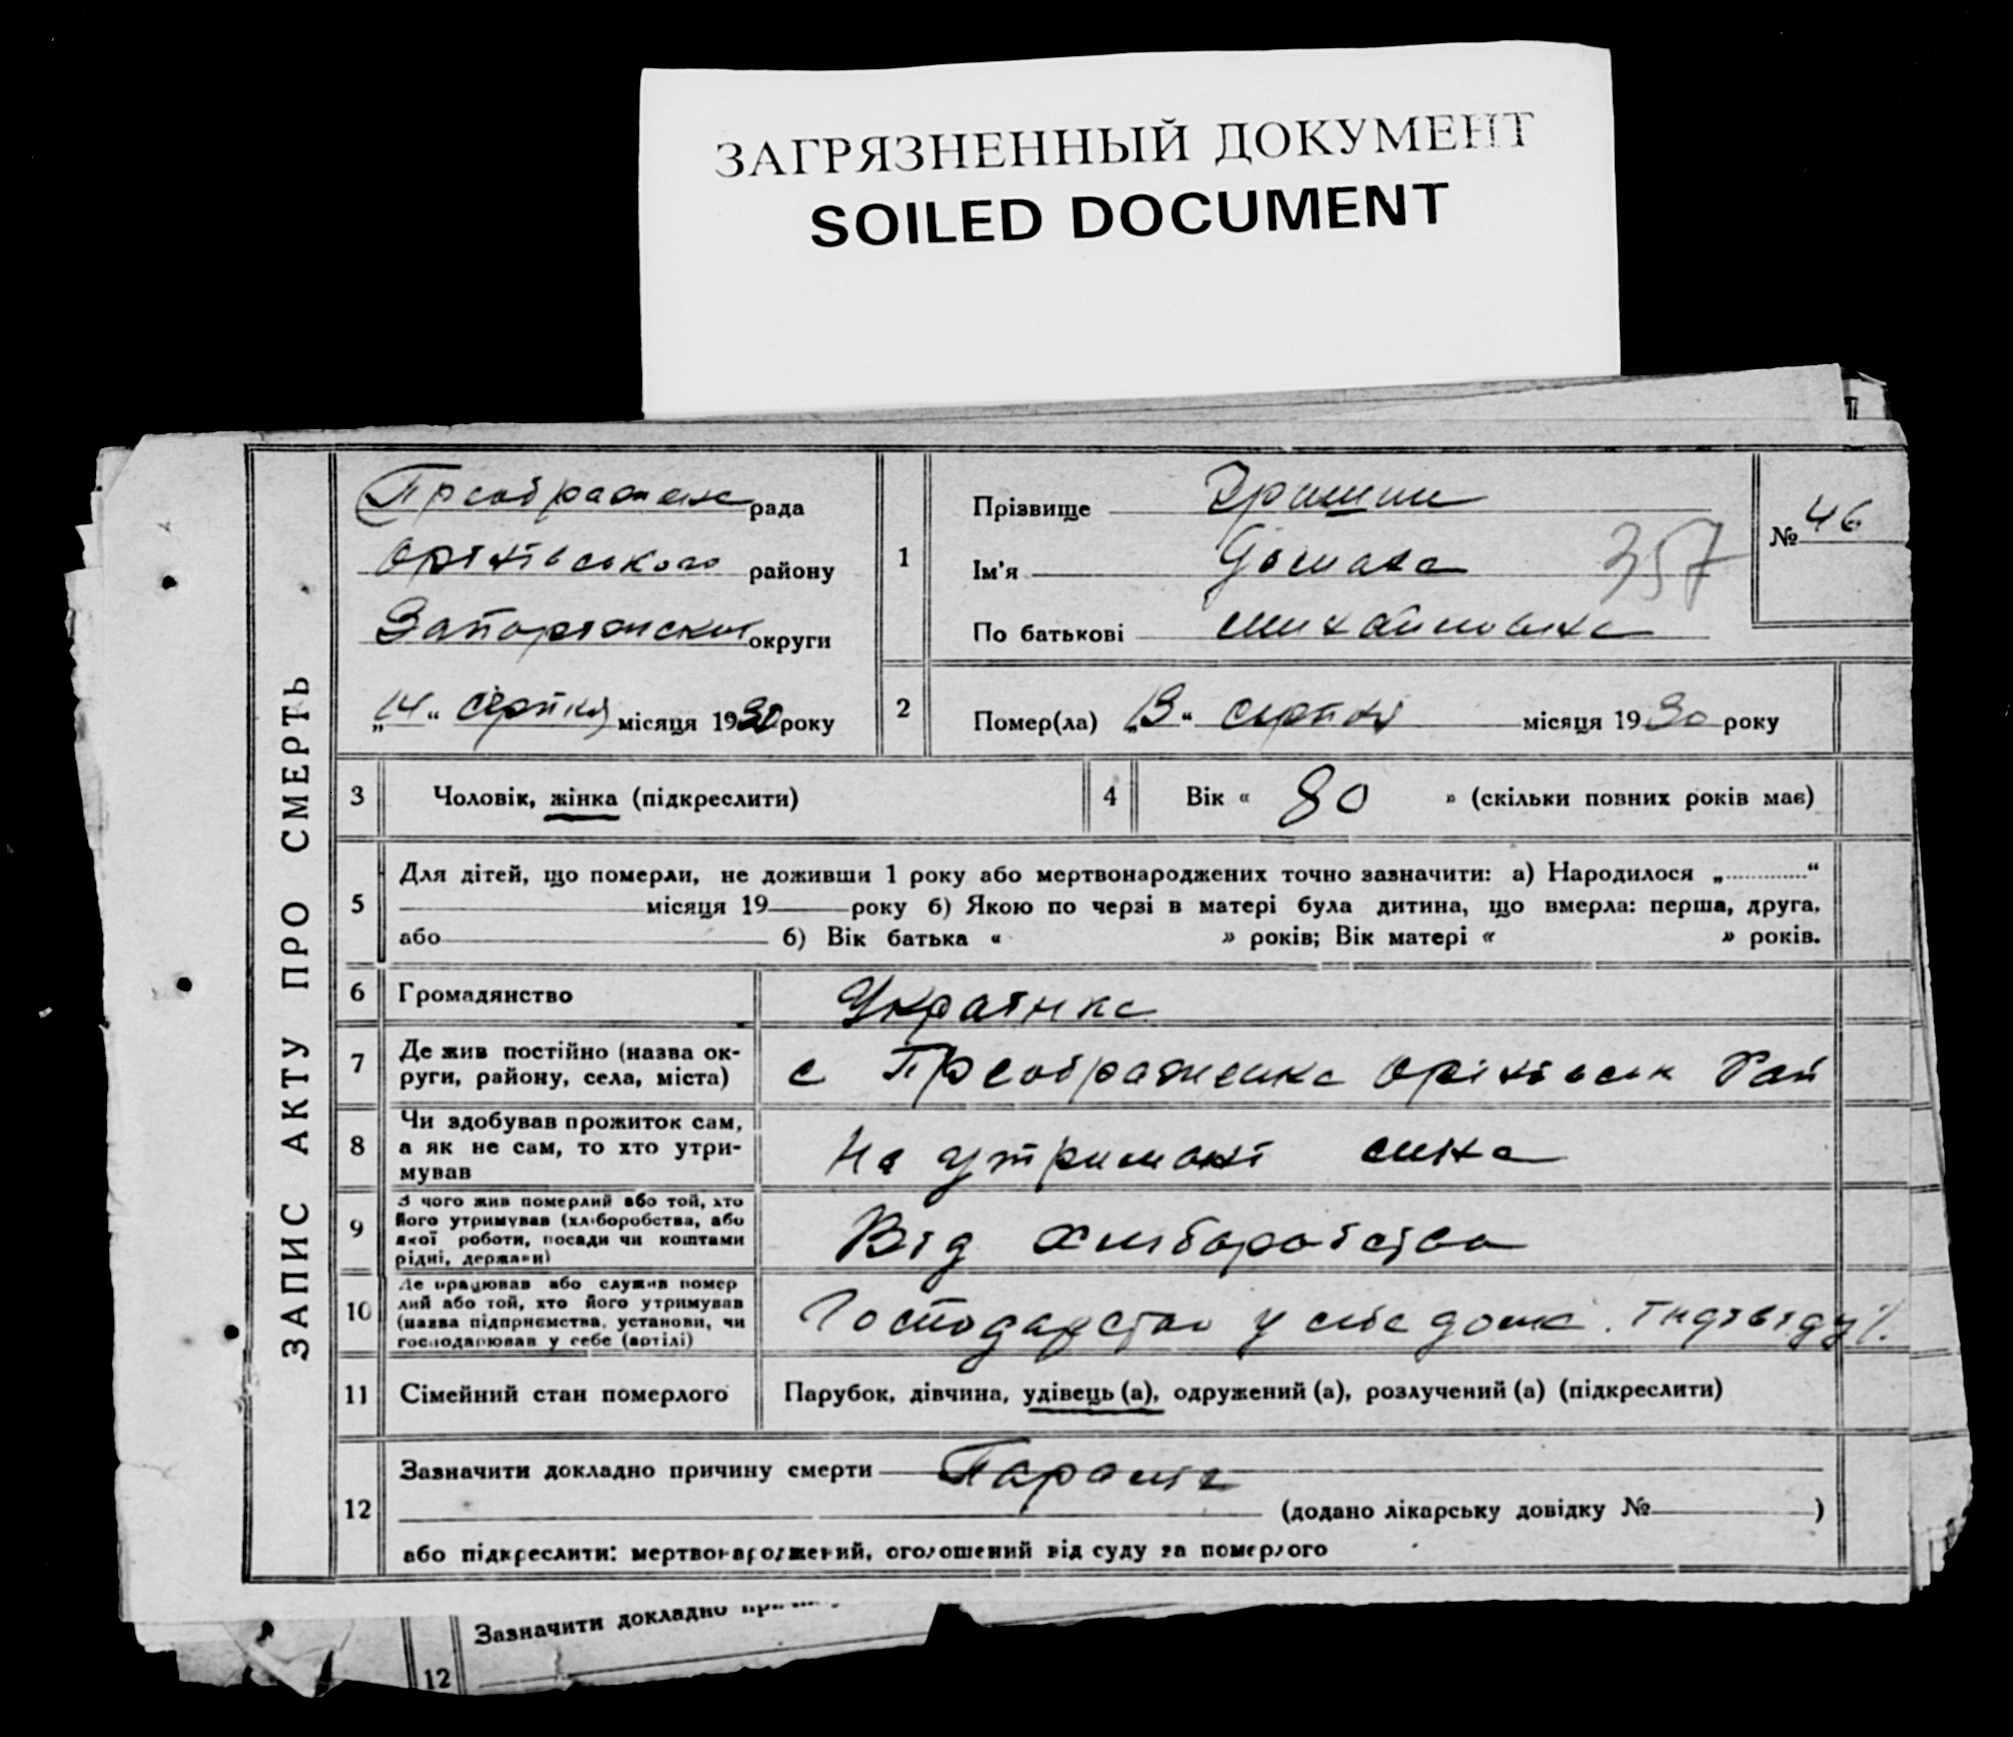 ЗАГРЯЗНЕННЫЙ ДОКУМЕНТ
SOILED DOCUMENT
ЗАПИС АКТУ ПРО СМЕРТЬ
Преображенс рада
Оріхівського району
Запоріжської округи
„14“ серпня місяця 1930 року
1
Прізвище
Ім'я
357
По батькові
№ 46
2
Помер(ла) „13“ серпня місяця 1930 року
3 Чоловік, жінка (підкреслити)
4 Вік « 80 » (скільки повних років має)
5
Для дітей, що померли, не доживши 1 року або мертвонароджених точно зазначити: а) Народилося „ “
місяця 19 року б) Якою по черзі в матері була дитина, що вмерла: перша, друга,
або б) Вік батька « » років; Вік матері « » років.
6 Громадянство Українка
7
Де жив постійно (назва ок-
руги, району, села, міста)
с Преображенка Оріхівськ Рай
8
Чи здобував прожиток сам,
а як не сам, то хто утри-
мував
На утримані сина
9
З чого жив померлий або той, хто
його утримував (хліборобства, або
якої роботи, посади чи коштами
рідні, держави)
Від хліборобства
10
Де працював або служив помер
лий або той, хто його утримував
(назва підприємства, установи, чи
господарював у себе (артілі)
Господарство у себе дома.
11 Сімейний стан померлого
Парубок, дівчина, удівець (а), одружений (а), розлучений (а) (підкреслити)
12
Зазначити докладно причину смерти
(додано лікарську довідку № )
або підкреслити: мертвонароджений, оголошений від суду за померлого
Зазначити докладно
12